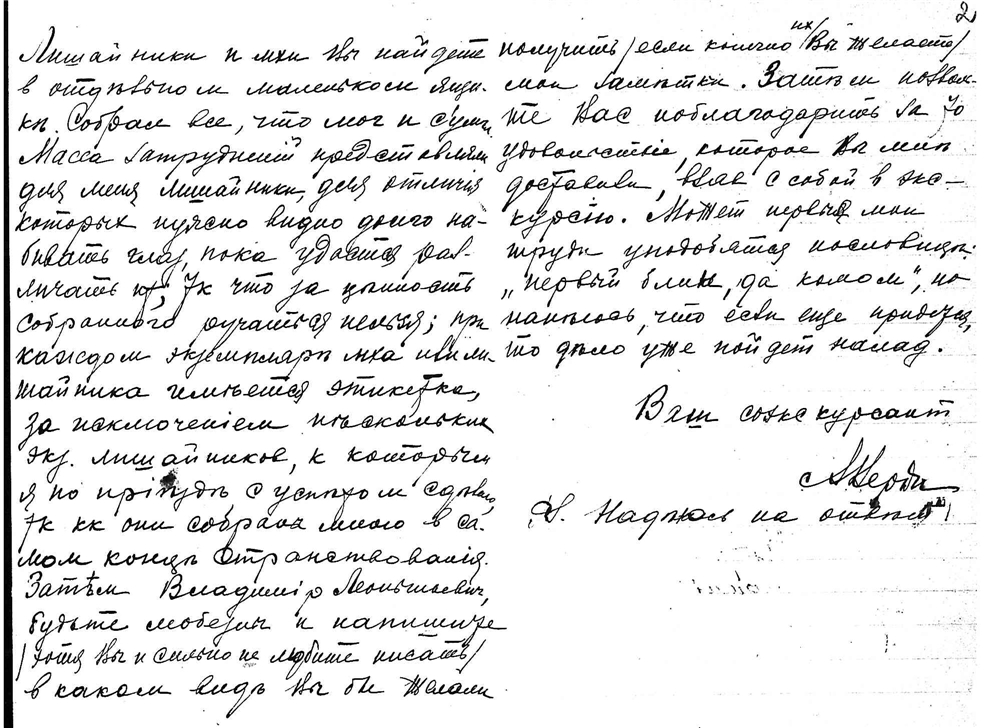 2
Лишайники и мхи Вы найдете
в отдѣльном маленьком ящи-
кѣ. Собрал все, что мог и сумѣл.
Масса затруднений представляли
для меня лишайники, для отличія
которых нужно видно долго на-
бивать глаз, пока удастся раз-
личать их; тк что за цѣнность
собранного ручаться нельзя; при
каждом экземплярѣ мха или ли-
шайника имѣется этикетка,
за исключеніем нѣскольких
экз. лишайников, к которым
я но с успѣхом
тк кк они собраны мною в са-
мом концѣ странствованія.
Затѣм Владимір Леонтьевич,
будьте любезны и напишите
/хотя Вы и сильно не любите писать/
в каком видѣ Вы бы желали
получить /если конечно их Вы желаете/
мои замѣтки. Затѣм позволь-
те Вас поблагодарить за то
удовольствіе, которое Вы мнѣ
доставили, взяв с собой в экс-
курсію. Может первыя мои
труды уподобятся пословицѣ:
„первый блин, да комом", но
надѣюсь, что если еще придется,
то дѣло уже пойдет на лад.
Ваш соэкскурсант
Надѣюсь на отвѣт!